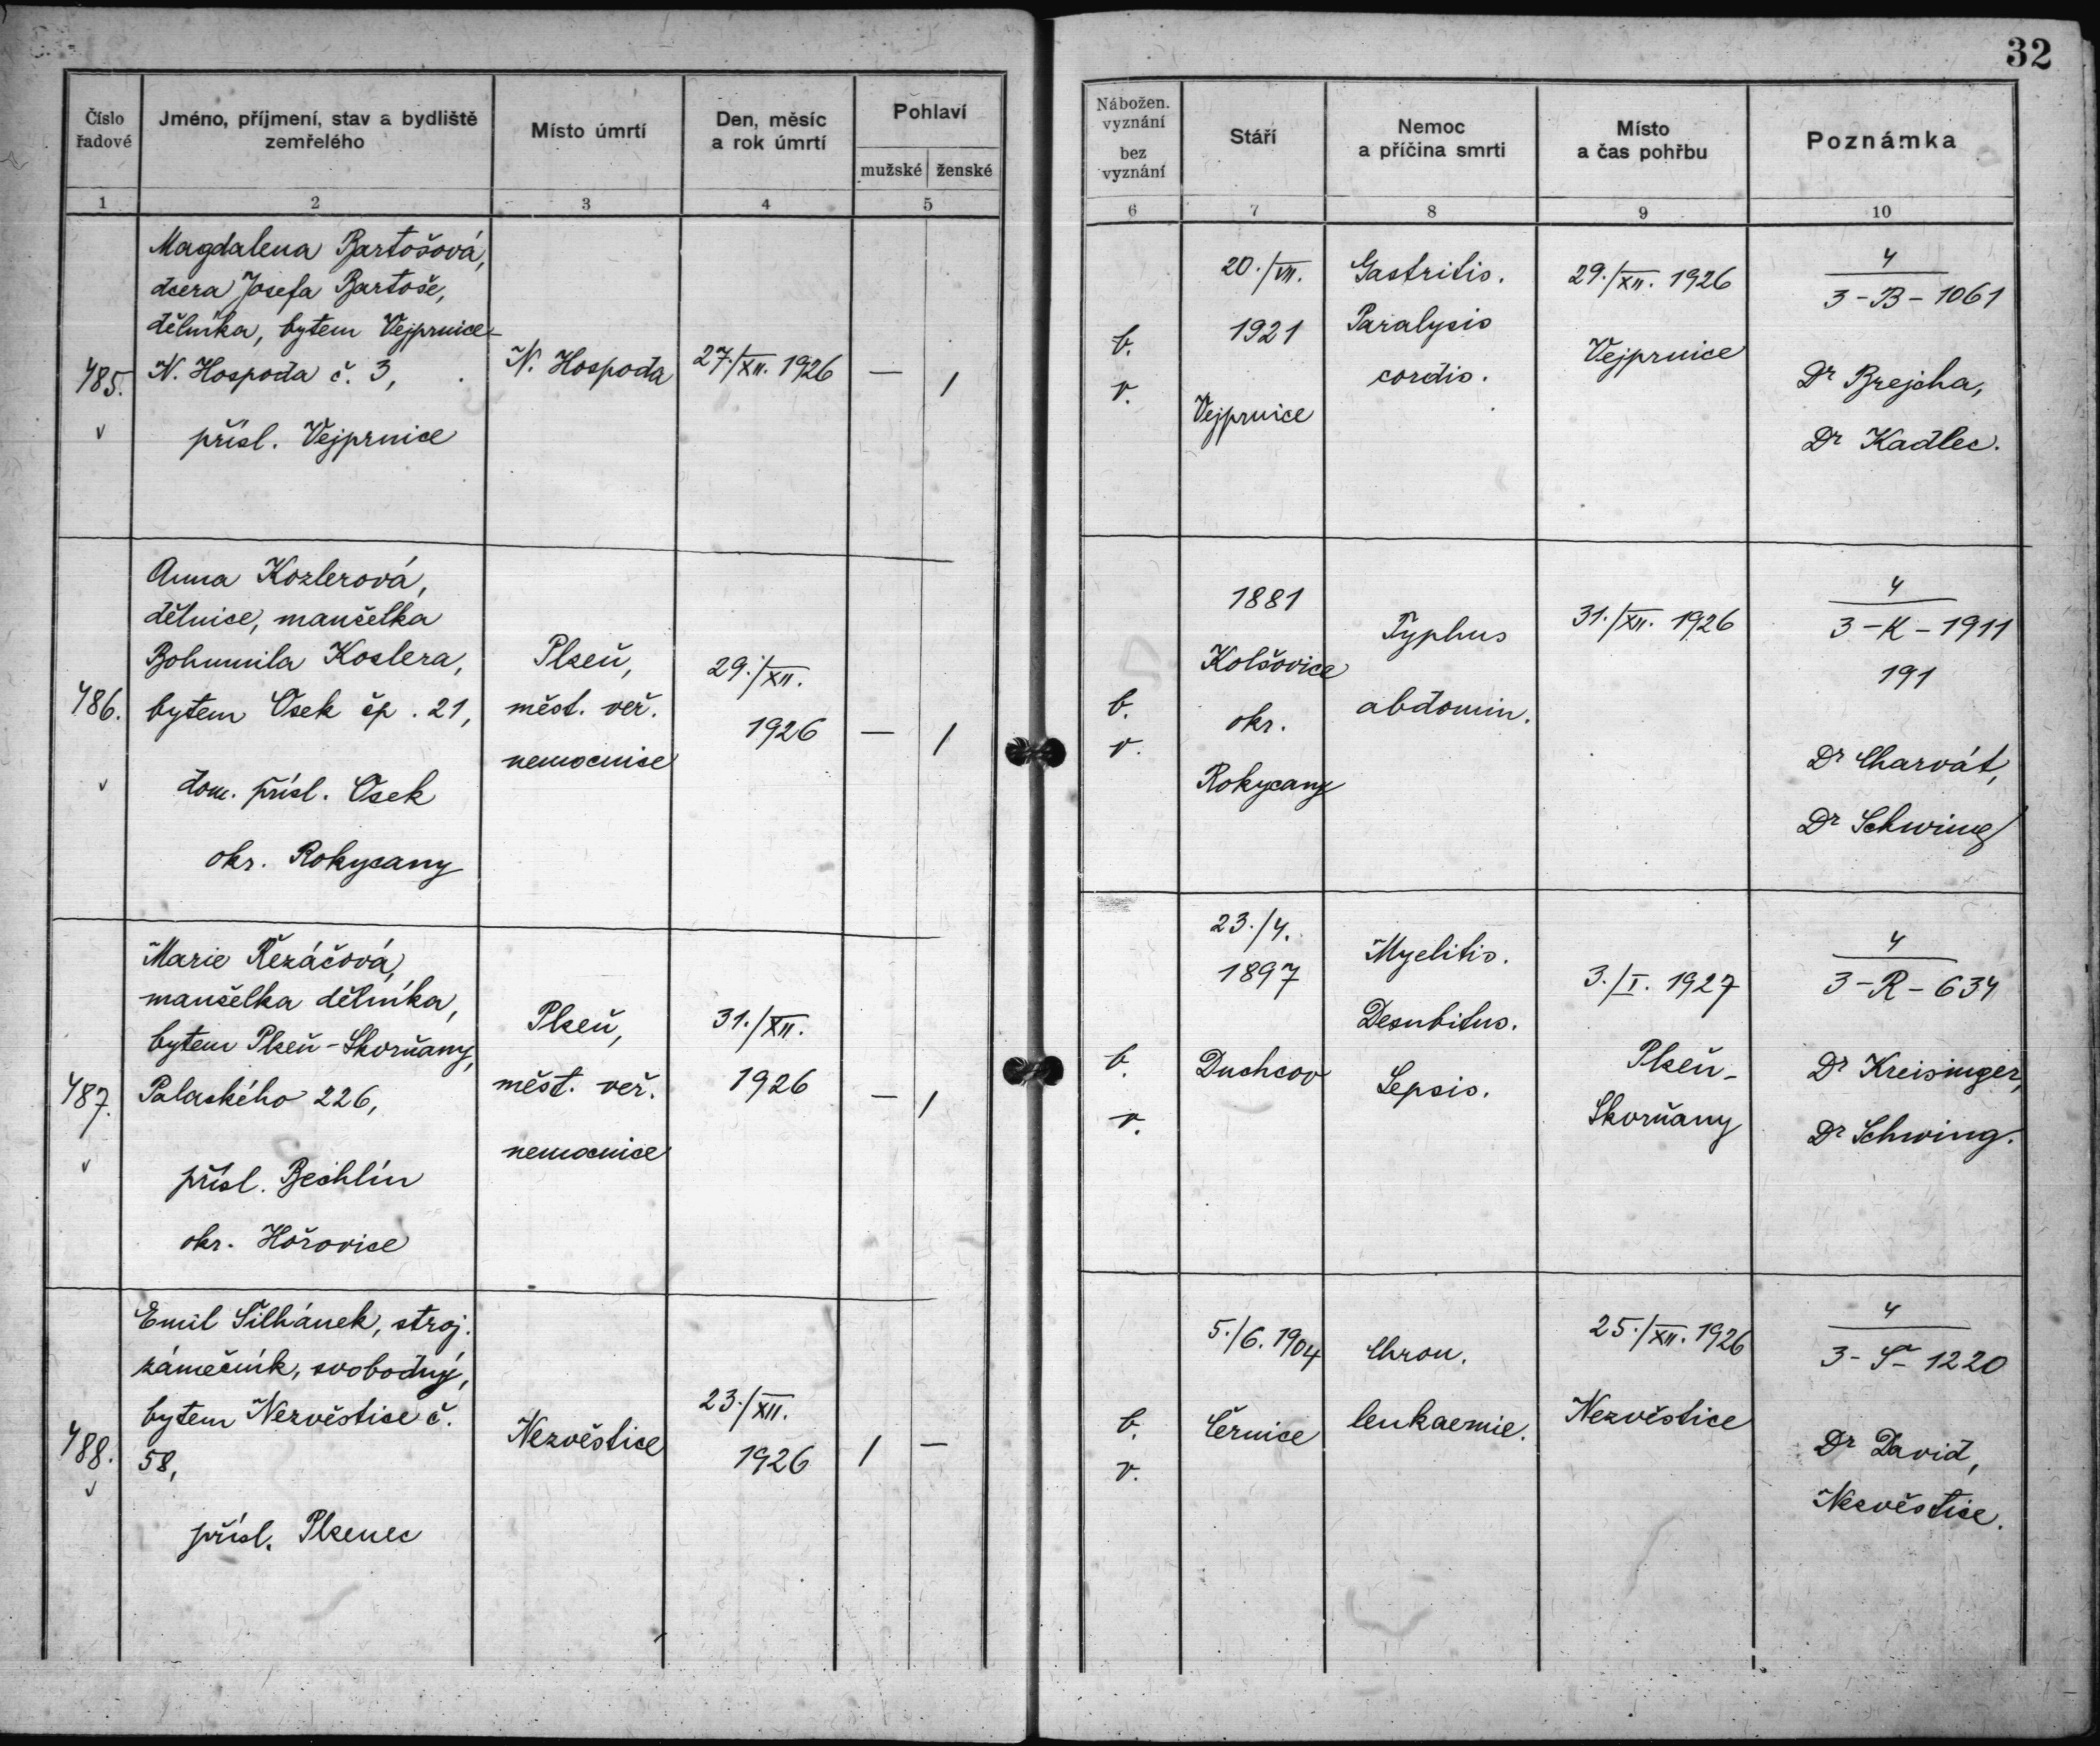 32
Číslo
řadové
Jméno, příjmení, stav a bydliště
zemřelého
Místo úmrtí
Den, měsíc
a rok úmrtí
Pohlaví
mužské
ženské
Nábožen.
vyznání
bez
vyznání
Stáří
Nemoc
a příčina smrti
Místo
a čas pohřbu
Poznámka
1
2
3
4
5
6
7
8
9
10
485.
v
Magdalena Bartošová,
dcera Josefa Bartoše,
dělníka, bytem Vejprnice-
N. Hospoda č. 3,
přísl. Vejprnice
N. Hospoda
27./XII. 1926
—
/
b.
v.
20./VII.
1921
Vejprnice
Gastritis.
Paralysis
cordis.
29./XII. 1926
Vejprnice
4
3-B-1061
Dr Brejcha,
Dr Kadlec.
486.
v
Anna Kozlerová,
dělnice, manželka
Bohumila Kozlera,
bytem Osek čp. 21,
dom. přísl. Osek
okr. Rokycany
Plzeň,
měst. veř.
nemocnice
29./XII.
1926
—
/
b.
v.
1881
Kolšovice
okr.
Rokycany
Typhus
abdomin.
31./XII. 1926
4
3-K-1911
191
Dr Charvát,
Dr Schwing
487.
v
Marie Řezáčová,
manželka dělníka,
bytem Plzeň-Skvrňany,
Palackého 226,
přísl. Bechlín
okr. Hořovice
Plzeň,
měst. veř.
nemocnice
31./XII.
1926
—
/
b.
v.
23./4.
1897
Duchcov
Myelitis.
Decubitus.
Sepsis.
3./I. 1927
Plzeň-
Skvrňany
4
3-R-634
Dr Kreisinger,
Dr Schwing.
488.
v
Emil Šilhánek, stroj.
zámečník, svobodný,
bytem Nezvěstice č.
58,
přísl. Plzenec
Nezvěstice
23./XII.
1926
/
—
b.
v.
5./6. 1904
Černice
Chron.
leukaemie.
25./XII. 1926
Nezvěstice
4
3-Š-1220
Dr David,
Nezvěstice.